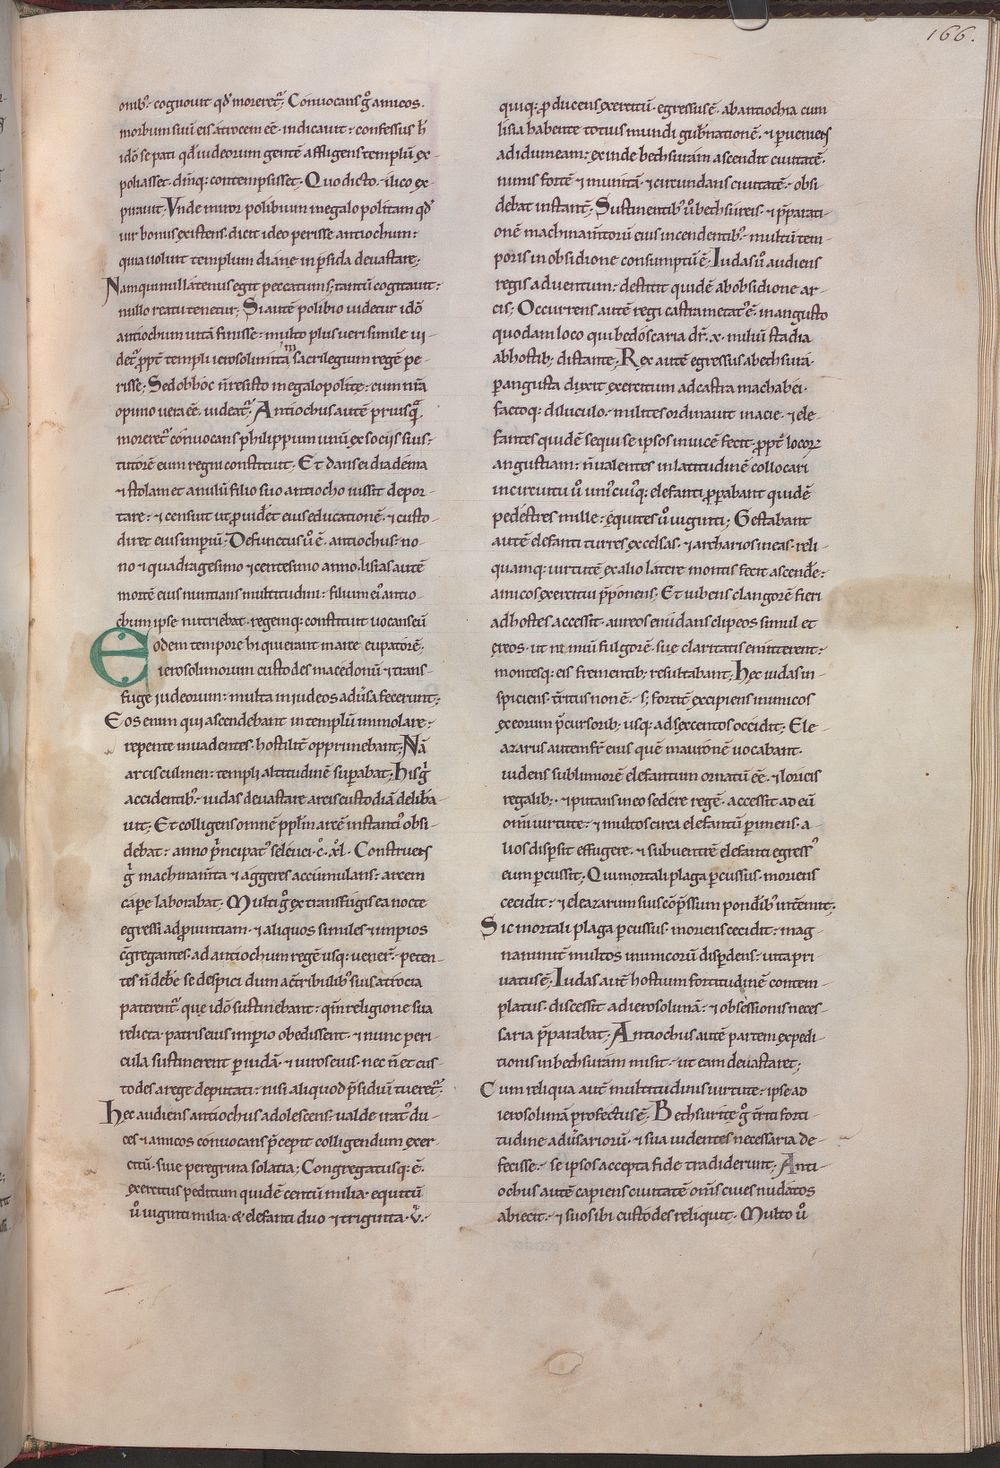 166.
onib; cognouit qđ moreret᷑; Conuocans g̊ amicos.
morbum suū eis atrocem eē. indicauit ⁊ confessus ħ
idō se pati qđ iudeorum gentē affligens templū ex-
poliasset. dm̄q; contempsisset. Quo dicto. ilico ex-
pirauit. Vnde miror polibium megalopolitam qđ
uir bonus existens. dicit ideo perisse antiochum:
quia uoluit templum diane in ꝑsida deuastare;
Nam qui nullatenus egit peccatum; tantū cogitauit:
nullo reatu tenetur; Si autē polibio uidetur idō
antiochum uitā finisse: multo plus ueri simile ui-
det᷑ ꝓpt̄ templi ierosolimitani sacrilegium regē pe-
risse; Sed ob hoc n̄ resisto megalopolite; cum nr̄a
opinio uera eē. uideat᷑; Antiochus autē priusq̄
moreret᷑ conuocans philippum unū ex sociis suis:
tutorē eum regni constituit. Et dans ei diadema
⁊ stolam et anulū filio suo antiocho iussit depor-
tare: ⁊ censuit ut ꝓuidēt eius educationē. ⁊ custo-
diret eius imperiū; Defunctus ū ē. antiochus. no-
no ⁊ quadragesimo ⁊ centesimo anno. lisias autē
mortē eius nuntians multitudini: filium ei᷒ antio-
chum ipse nutriebat. regemq; constituit uocans eū
Eodem tempore hi qui erant in arce eupatorē.
ierosolimorum custodes macedonū ⁊ trans-
fuge iudeorum: multa in iudeos adūsa fecerunt;
Eos enim qui ascendebant in templū immolare:
repente inuadentes. hostilit̄ opprimebant; Nā
arcis culmen: templi altitudinē suꝑabat; His g̊
accidentib; iudas deuastare arcis custodiā delib̄a-
uit; Et colligens omnē pplm̄ arcē instant᷒ obsi-
debat: anno p̄ncipat᷒ seleuci. c̊. xl̊. Construens
g̊ machinam̄ta ⁊ aggeres accumulans: arcem
cape laborabat; Multi g̊ ex transfugis ea nocte
egressi ad ꝓuintiam. ⁊ aliquos similes ⁊ impios
ꝯgregantes. ad antiochum regē usq; uener̄. peten-
tes n̄ debē se despici dum a ꝯtribulib᷒ suis atrocia
paterent᷑. que idō sustinebant: qm̄ religione sua
relicta. patris eius imꝑio obedissent. ⁊ nunc peri-
cula sustinerent ꝑ iudā. ⁊ uiros eius. nec n̄ et cus-
todes a rege deputati: nisi aliquod p̄sidiū tueret᷑.
Hec audiens antiochus adolescens. ualde irat᷒ du-
ces ⁊ amicos conuocans p̄cepit colligendum exer-
citū. siue peregrina solatia; Congregatusq; ē.
exercitus peditum quidē centū milia. equitū
ū uiginti milia. & elefanti duo ⁊ triginta. v̄.
quiq; ꝓducens exercitū. egressus ē. ab antiochia cum
lisia habente totius mundi gub̄nationē. ⁊ ꝑueniens
ad idumeam: exinde bethsuram ascendit ciuitatē.
nimis fortē ⁊ munitā. ⁊ circundans ciuitatē. obsi
debat instant̄; Sustinentib᷒ ū bechsureis. ⁊ p̄parati-
onē machinam̄torū eius incendentib᷒. multū tem-
poris in obsidione consumptū ē; Iudas ū audiens
regis aduentum: destitit quidē ab obsidione ar-
cis; Occurrens autē regi castrametat᷒ ē. in angusto
quodam loco qui bedōscaria dr̄. x. miliū stadia
ab hostib; distante; Rex autē egressus a bechsura.
ꝑ angusta duxit exercitum ad castra machabei.
factoq; diluculo. milites ordinauit in acie. ⁊ ele-
fantes quidē sequi se ipsos inuicē fecit. ꝓpt̄ locoꝝ
angustiam: n̄ ualentes in latitudinē collocari
in circuitu ū unicuiq; elefanti ꝓꝑabant quidē
pedestres mille: equites ū uiginti; Gestabant
autē elefanti turres excelsas. ⁊ archarios in eas. reli-
quamq; uirtutē ex alio latere montis fecit ascendē:
amicos exercitui p̄ponens; Et iubens clangorē fieri
ad hostes accessit. aureos enī dans clipeos simul et
ereos. ut nimiū fulgorē. sue claritatis emitterent:
montesq; eis frementib; resultabant; Hec iudas in-
spiciens. t̄ritus non ē. s; fortit̄ excipiens inimicos
ex eorum p̄cursorib; usq; ad sexcentos occidit; Ele-
azarus autem fr̄ eius quē mauronē uocabant.
uidens sublimiorē elefantum ornatū eē. ⁊ loricis
regalib;. ⁊ putans in eo sedere regē. accessit ad eū
om̄i uirtute: ⁊ multos circa elefantū ꝑimens. a-
lios dispersit effugere. ⁊ subuentrē elefanti egress᷒
eum ꝑcussit; Qui mortali plaga ꝑcussus. moriens
cecidit: ⁊ eleazarum suis cōp̄ssium pondib᷒ int̄emit;
Sic mortali plaga ꝑcussus. moriens cecidit: mag-
nanimit̄ multos inimicorū disꝑdens. uita pri-
uatus ē; Iudas autē hostium fortitudinē contem-
platus. discessit ad ierosolimā: ⁊ obsessionis neces-
saria p̄parabat; Antiochus autē partem expedi-
tionis in bechsuram misit. ut eam deuastaret;
Cum reliqua autē multitudinis uirtute: ipse ad
ierosolimā profectus ē; Bechsurite g̊ t̄riti forti-
tudine adūsariorū. ⁊ sua uidentes necessaria de-
fecisse. se ipsos accepta fide tradiderunt; Anti-
ochus autē capiens ciuitatē om̄s ciues nudatos
abiecit. ⁊ suos ibi custodes reliquit. Multo ū